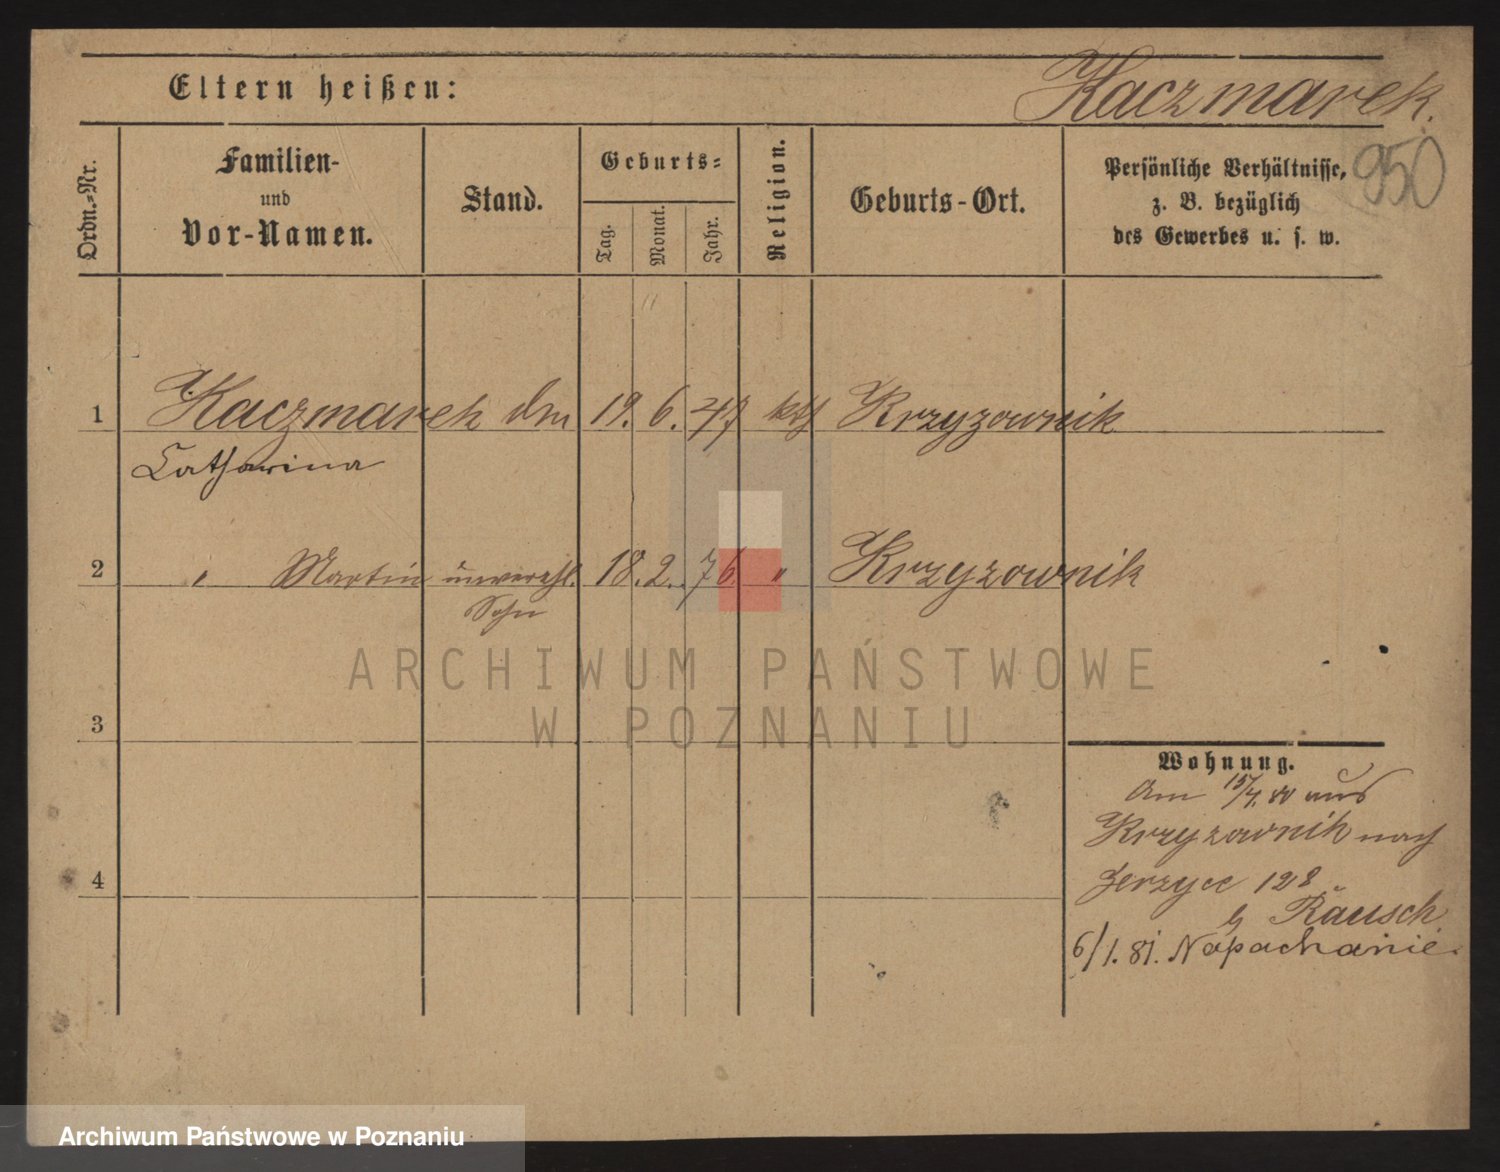 Eltern heißen: Kaczmarek.
950
Ordn.-Nr.
Familien-
und
Vor-Namen.
Stand.
Geburts-
Tag.
Monat.
Jahr.
Religion.
Geburts-Ort.
Persönliche Verhältnisse,
z. B. bezüglich
des Gewerbes u. s. w.
1 Kaczmarek 19. 6. 47 kth Krzyzownik
Catharina
2 " Martin unverehl. 18. 2. 76 " Krzyzownik
Sohn
ARCHIWUM PAŃSTWOWE
W POZNANIU
3
Wohnung.
Am 15/4. 80 aus
Krzyzownik nach
Jerzyce 128
4
b Rausch
6/1. 81. Napachanie.
Archiwum Państwowe w Poznaniu